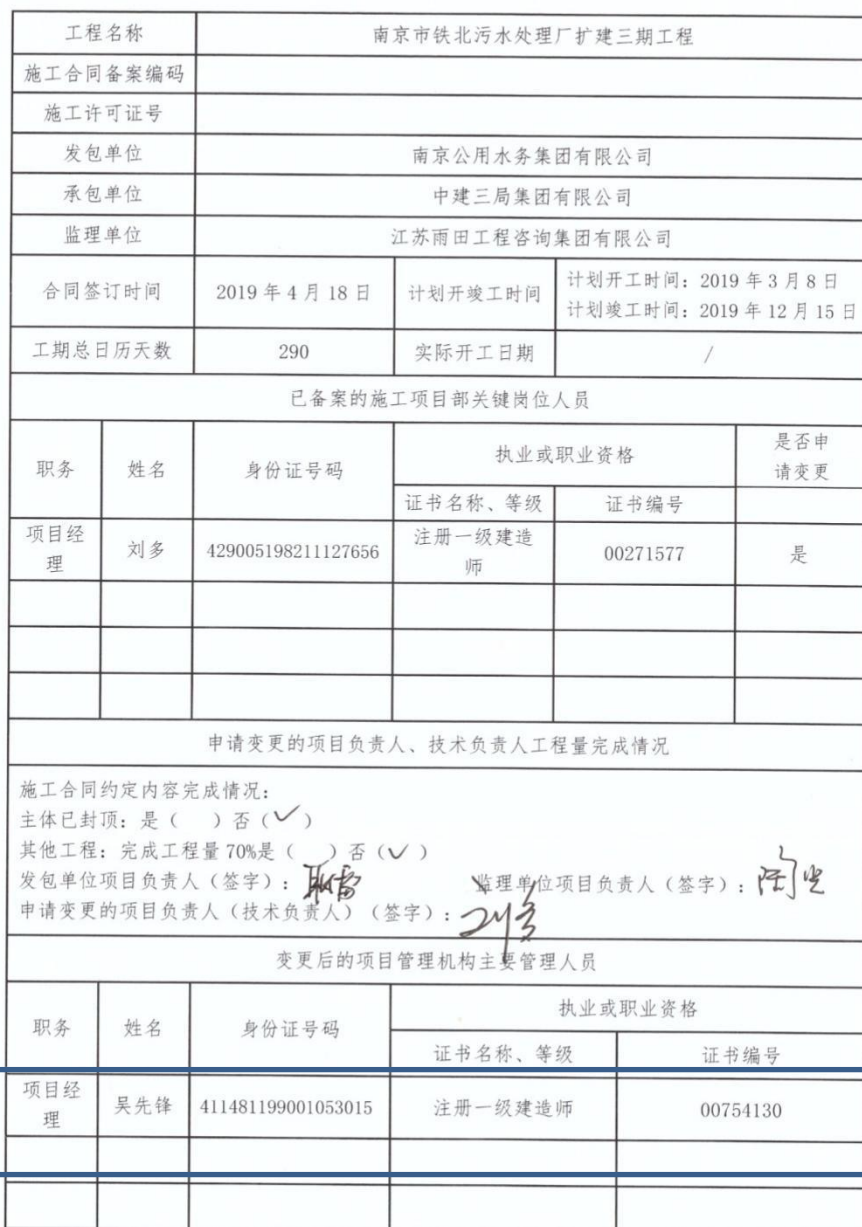 工程名称 南京市铁北污水处理厂扩建三期工程
施工合同备案编码
施工许可证号
发包单位 南京公用水务集团有限公司
承包单位 中建三局集团有限公司
监理单位 江苏雨田工程咨询集团有限公司
合同签订时间 2019 年 4 月 18 日 计划开竣工时间 计划开工时间：2019 年 3 月 8 日
计划竣工时间：2019 年 12 月 15 日
工期总日历天数 290 实际开工日期 /
已备案的施工项目部关键岗位人员
职务 姓名 身份证号码 执业或职业资格 是否申
请变更
证书名称、等级 证书编号
项目经
理 刘多 429005198211127656 注册一级建造
师 00271577 是
申请变更的项目负责人、技术负责人工程量完成情况
施工合同约定内容完成情况：
主体已封顶：是（ ）否（✓）
其他工程：完成工程量 70%是（ ）否（✓）
发包单位项目负责人（签字）： 监理单位项目负责人（签字）：
申请变更的项目负责人（技术负责人）（签字）：刘多
变更后的项目管理机构主要管理人员
职务 姓名 身份证号码 执业或职业资格
证书名称、等级 证书编号
项目经
理 吴先锋 411481199001053015 注册一级建造师 00754130